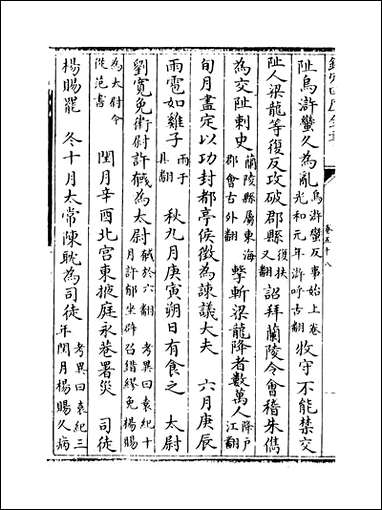 欽定四庫全書
卷五十八
阯烏滸蠻久為亂烏滸蠻反事始上卷光和元年滸呼古翻牧守不能禁交
阯人梁龍等復反攻破郡縣復扶又翻詔拜蘭陵令會稽朱儁
為交阯刺史蘭陵縣屬東海郡會古外翻擊斬梁龍降者數萬人降戶江翻
旬月盡定以功封都亭侯徵為諫議大夫 六月庚辰
雨雹如雞子雨于具翻 秋九月庚寅朔日有食之 太尉
劉寬免衛尉許䤋為太尉䤋於六翻 考異曰袁紀十月許郁坐辟召錯繆免楊賜
為太尉今從范書 閏月辛酉北宮東掖庭永巷署災 司徒
楊賜罷 冬十月太常陳耽為司徒考異曰袁紀三年閏月楊賜久病